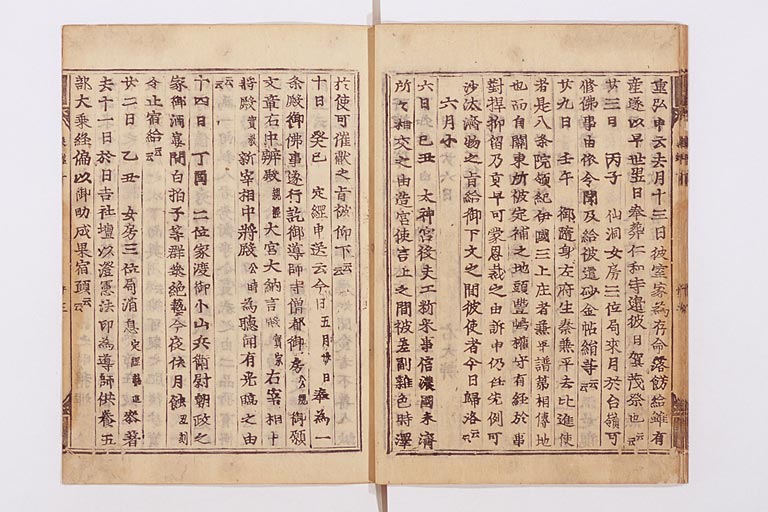 重弘申云去月十三日彼室家為存命落餝給雖有
産遂以早世翌日奉葬仁和寺邊彼日賀茂祭也云々
廿三日 丙子 仙洞女房三位局來月於台嶺可
修佛事由依令聞及給被遣砂金帖絹等云々
廿九日 壬午 御䟽身左府生秦兼平去比進使
者是八条院領紀伊國三上庄者兼平譜第相傳地
也而自關東所被定補之地頭豊嶋權守有經於事
對捍抑留乃貢早可蒙恩裁之由訴申仍任先例可
沙汰濟物之旨給御下文之間彼使者今日歸洛云々
六月小
六日 己丑 太神宮役夫工新米事信濃國未濟
所々相交之由造宮使言上之間被差副雜色時澤
於使可催獻之旨被仰下云々
十日 癸巳 定經申送云今日五月廿日奉為一
条殿御佛事遂行訖御導師寺僧都御房公顯御願
文章右中辨殿親經大宮大納言殿實宗右宰相中
將殿實新宰相中將殿公時為聴聞有光臨之由
云々
十四日 丁酉 二位家渡御小山兵衞尉朝政之
家御酒宴間白拍子等群參絶藝今夜依月蝕丑刻
令止宿給云々
廿二日 乙丑 女房三位局消息定經執進參著
去十一日於日吉社壇以澄憲法印為導師供養五
部大乗経偏以御助成果宿願云々